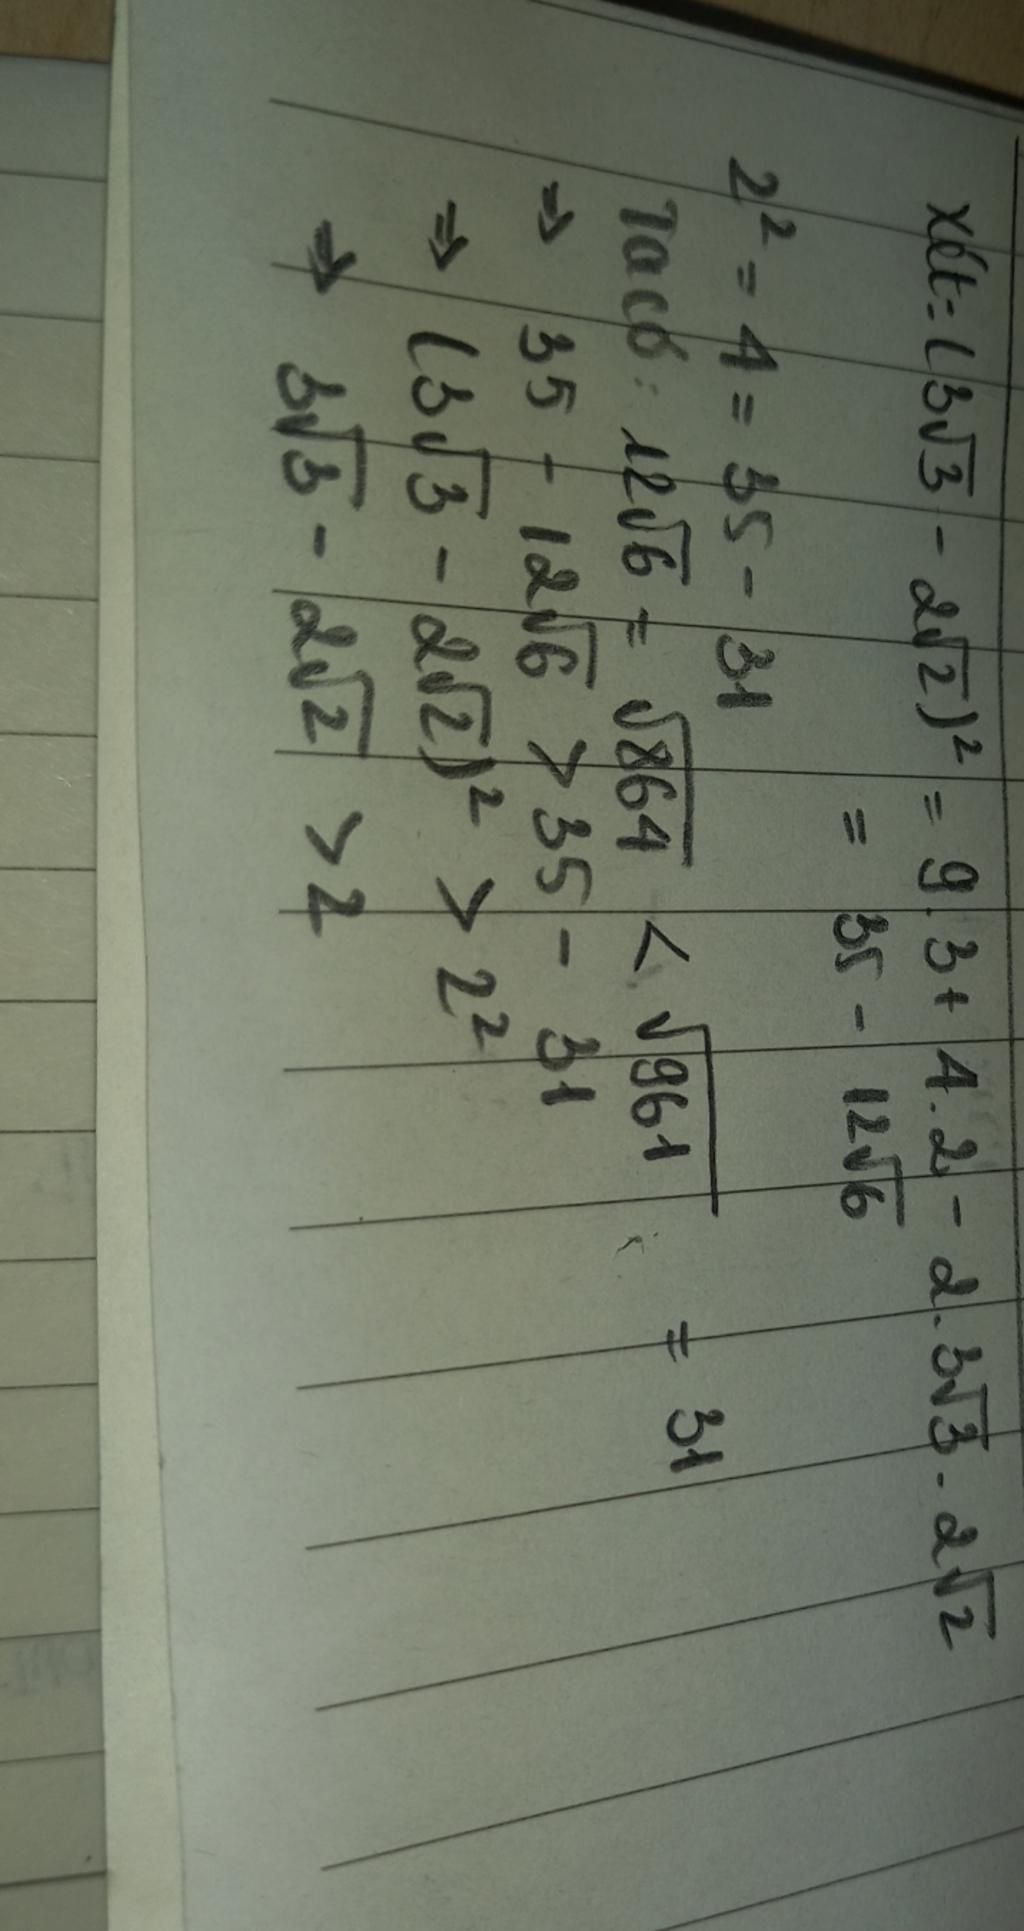 Xét: (3√3 - 2√2)² = 9.3 + 4.2 - 2.3√3.2√2
= 35 - 12√6
2² = 4 = 35 - 31
Ta có: 12√6 = √864 < √961 = 31
⇒ 35 - 12√6 > 35 - 31
⇒ (3√3 - 2√2)² > 2²
⇒ 3√3 - 2√2 > 2